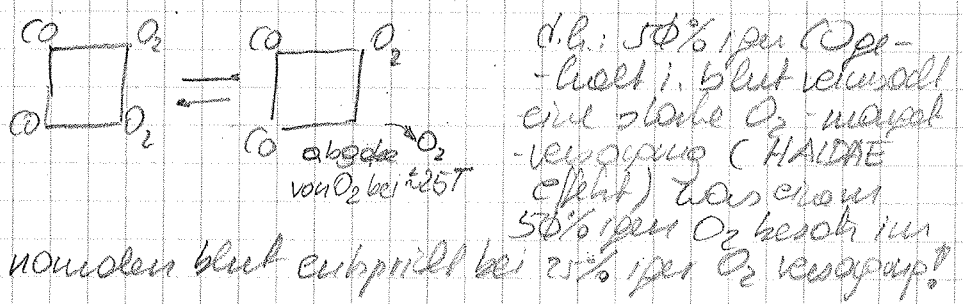 CO O₂ CO O₂
CO O₂ CO O₂
abgabe
von O₂ bei ≈25T
d.h.: 50%iger COge-
-halt i. blut verursacht
eine starke O₂-mangel
-versorgung (HALDAE
effekt) was einem
50%igen O₂ besatz im
normalen blut entspricht bei 25%iger O₂ versorgung!